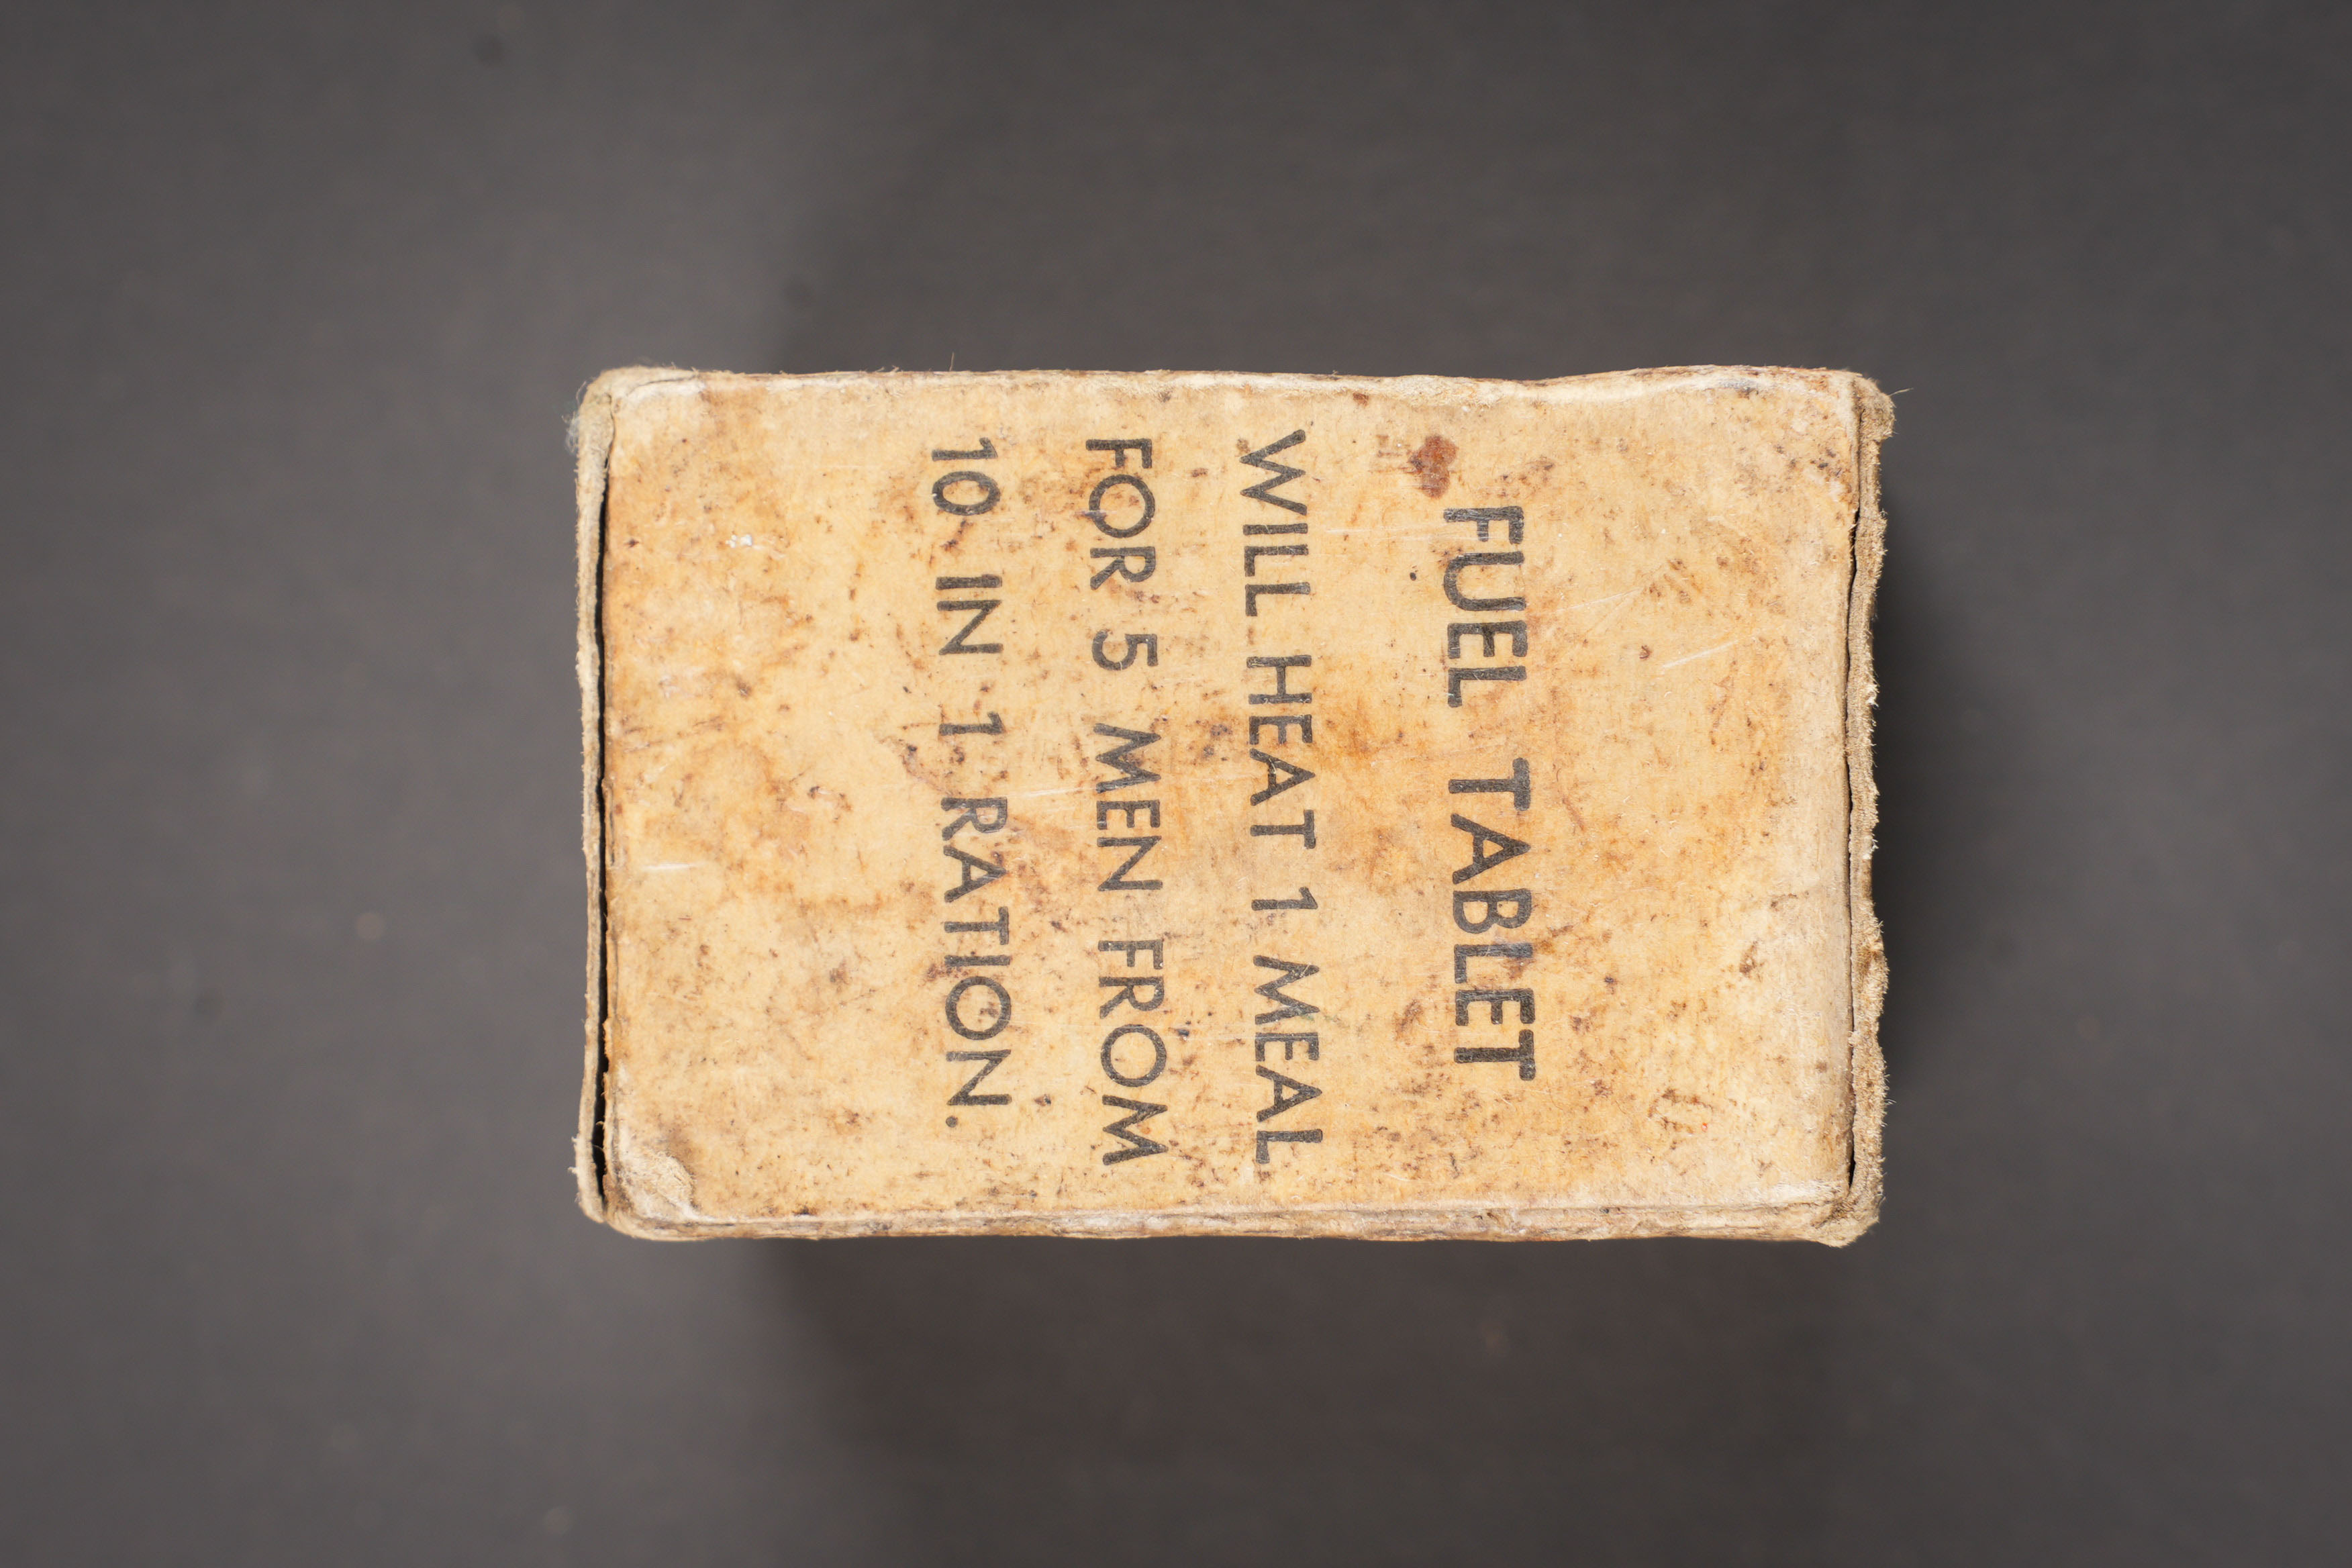 FUEL TABLET
WILL HEAT 1 MEAL
FOR 5 MEN FROM
10 IN 1 RATION.